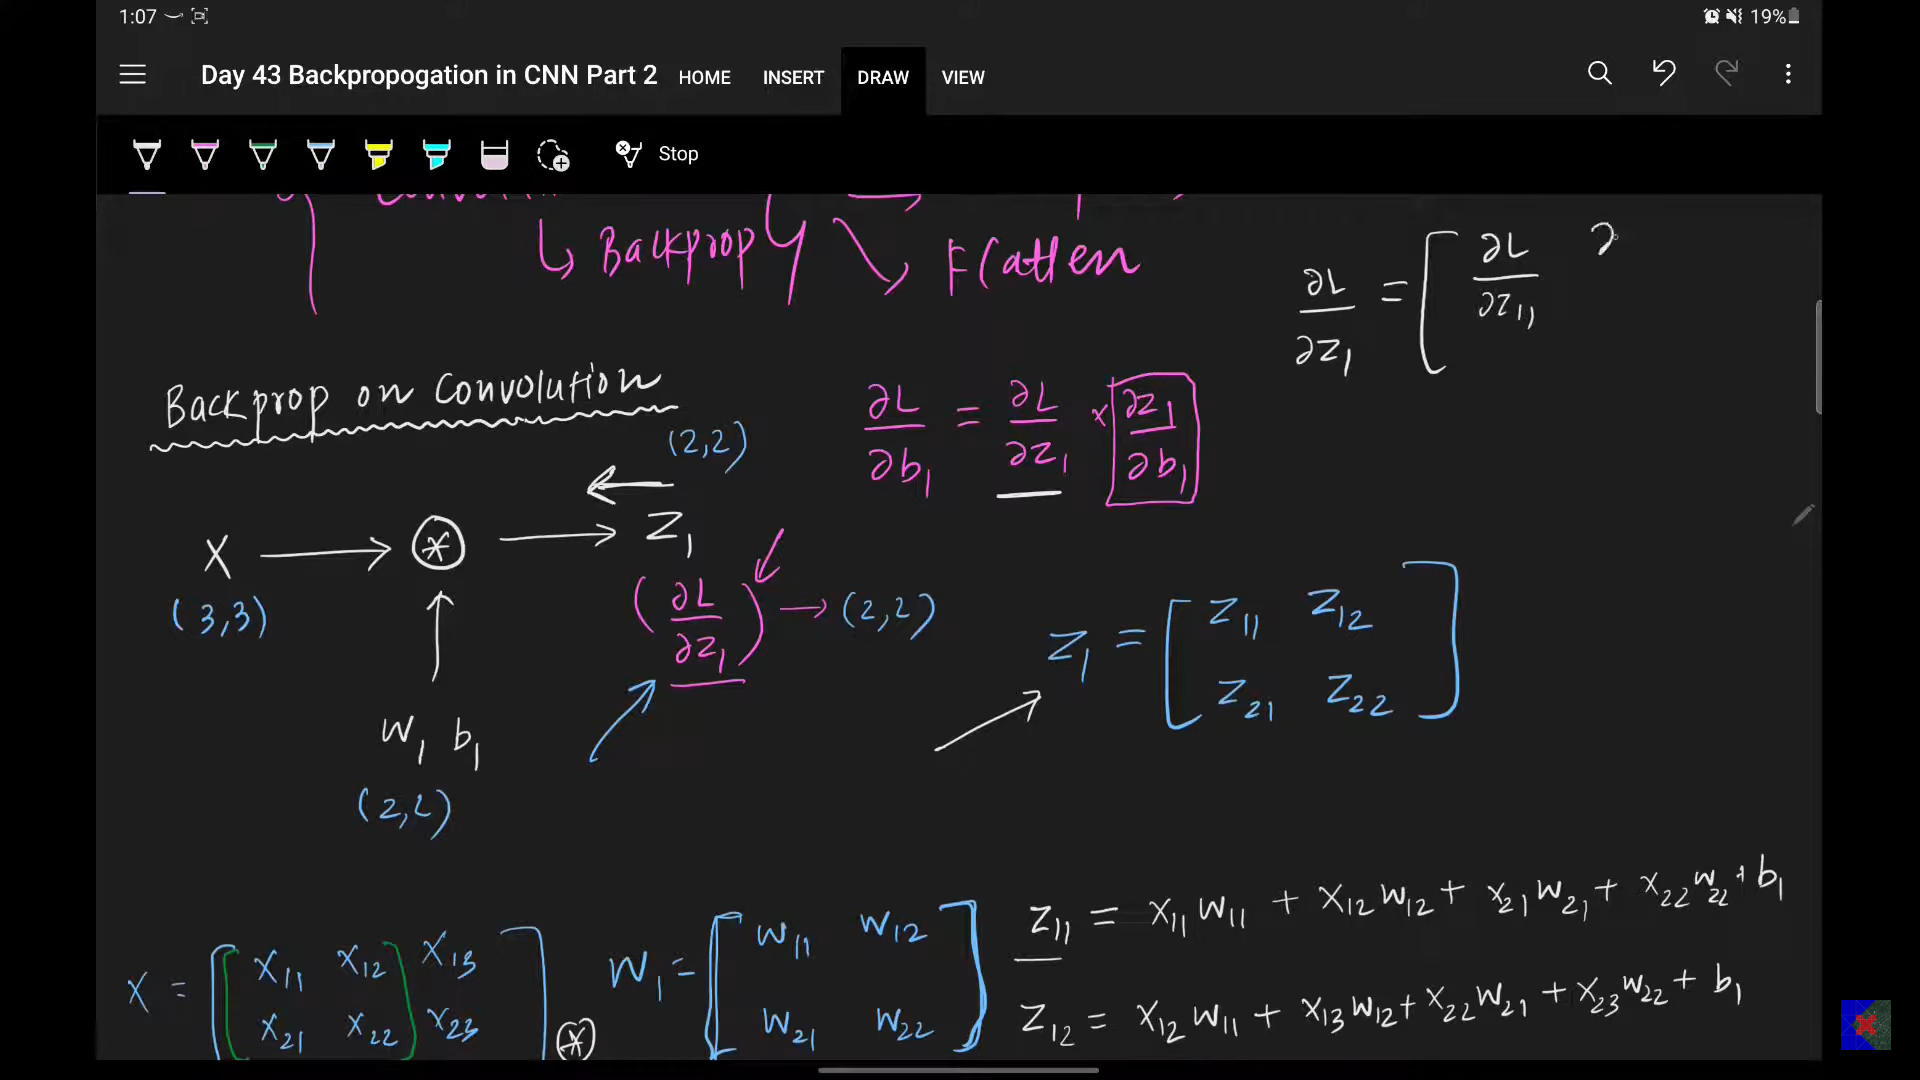 1:07 19%
Day 43 Backpropogation in CNN Part 2 HOME INSERT DRAW VIEW
Stop
↳ Backprop
Flatten
∂L/∂z₁ = [ ∂L/∂z₁₁ ∂
Backprop on Convolution
∂L/∂b₁ = ∂L/∂z₁ × ∂z₁/∂b₁
(2,2)
X → ⊛ → Z₁
(3,3)
(∂L/∂z₁) → (2,2)
Z₁ = [ Z₁₁ Z₁₂
Z₂₁ Z₂₂ ]
W₁ b₁
(2,2)
Z₁₁ = X₁₁ W₁₁ + X₁₂ W₁₂ + X₂₁ W₂₁ + X₂₂ W₂₂ + b₁
X = [ X₁₁ X₁₂ X₁₃
X₂₁ X₂₂ X₂₃ ⊛
W₁ = [ W₁₁ W₁₂
W₂₁ W₂₂ ]
Z₁₂ = X₁₂ W₁₁ + X₁₃ W₁₂ + X₂₂ W₂₁ + X₂₃ W₂₂ + b₁